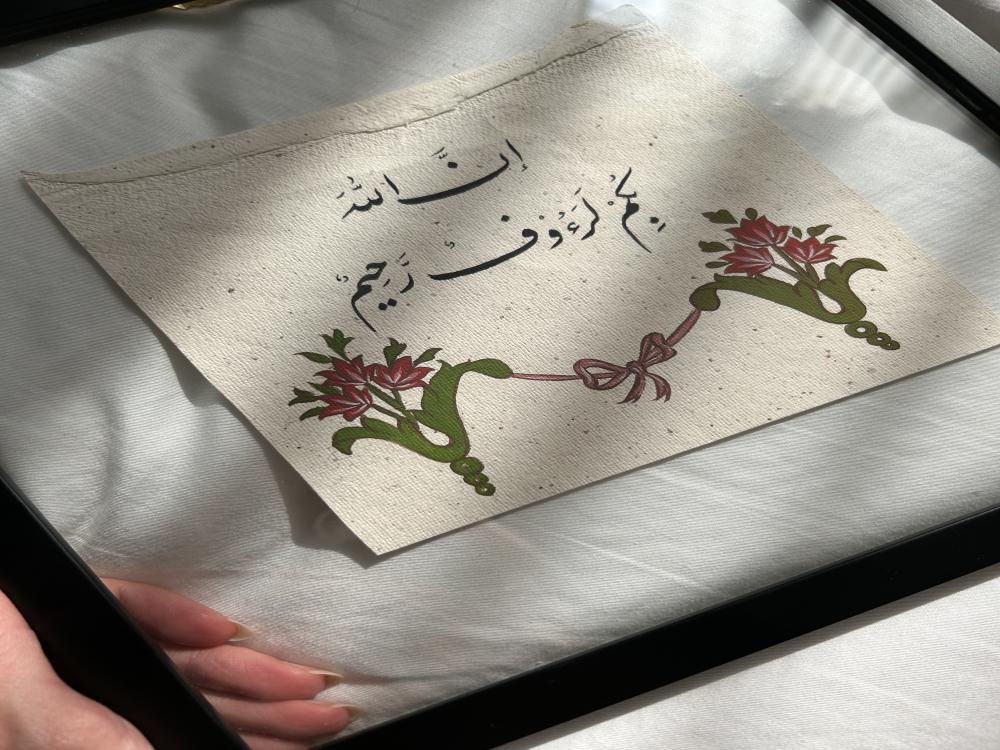 إنَّ اللّهَ
بِكُمْ لَرَءُوفٌ رَّحِيمٌ